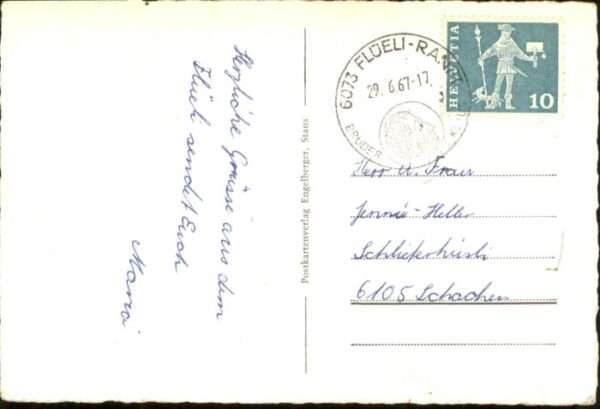 Herzliche Grüsse aus dem
Flüeli sendet Euch
Maria
Postkartenverlag Engelberger, Stans
6073 FLÜELI-RANFT
29.6.67-17
BRUDER KLAUS
HELVETIA
10
Herr u. Frau
Jenni-Heller
6105 Schachen